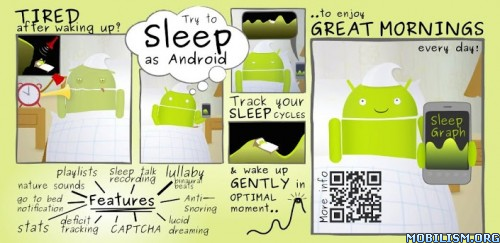 TIRED
after waking up?
Try to
Sleep
as Android
Track your
SLEEP CYCLES
& wake up
GENTLY in
OPTIMAL
moment..
..to enjoy
GREAT MORNINGS
every day!
Sleep
Graph
More info
playlists
Sleep talk
recording
lullaby
binaural
beats
nature sounds
go to bed
notification
Features
Anti-
Snoring
stats
deficit
tracking
CAPTCHA
lucid
dreaming
MOBILISM.ORG